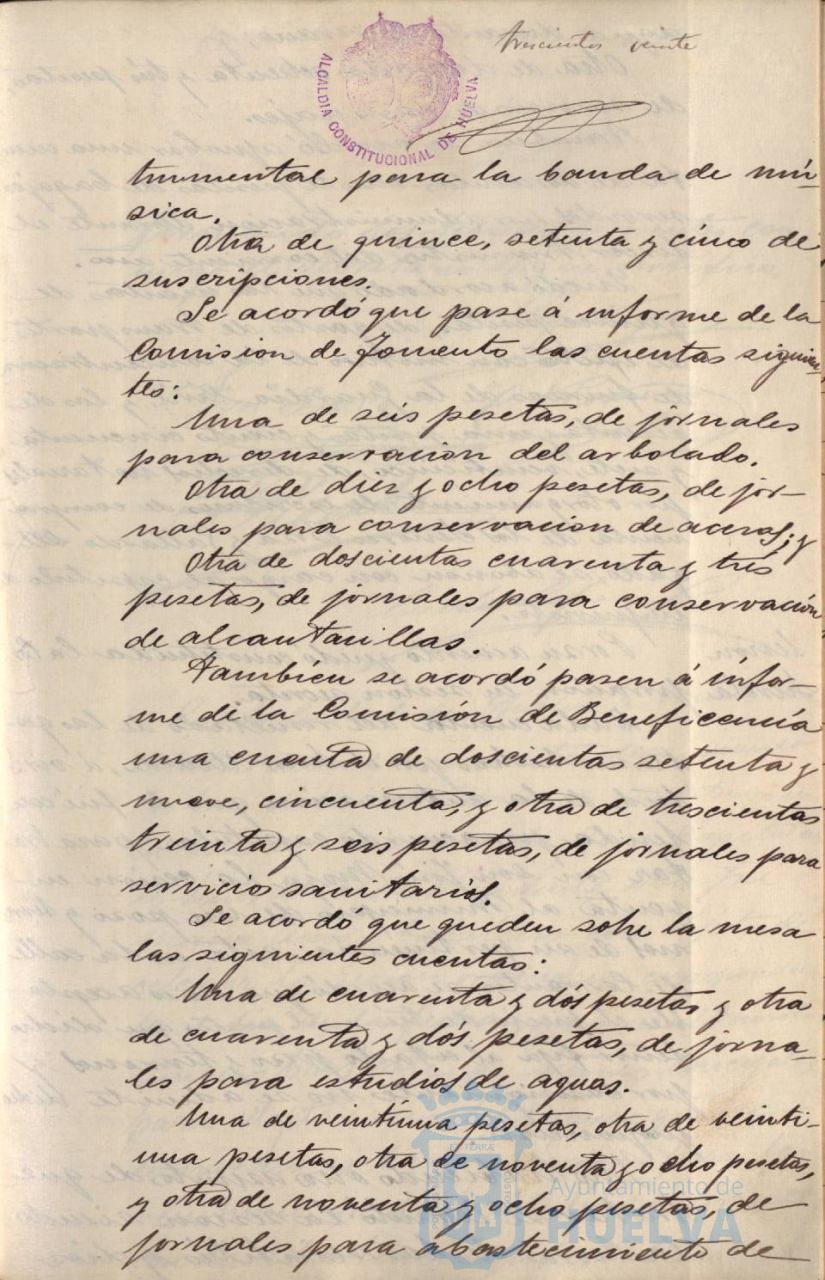 trescientos veinte
ALCALDIA CONSTITUCIONAL DE HUELVA
trumental para la banda de mú-
sica.
Otra de quince, setenta y cinco de
suscripciones.
Se acordó que pase á informe de la
Comision de Fomento las cuentas siguien-
tes:
Una de seis pesetas, de jornales
para conservacion del arbolado.
Otra de diez y ocho pesetas, de jor-
nales para conservacion de aceras; y
Otra de doscientas cuarenta y tres
pesetas, de jornales para conservación
de alcantarillas.
Tambien se acordó pasen á infor-
me de la Comisión de Beneficencia
una cuenta de doscientas setenta y
nueve, cincuenta, y otra de trescientas
treinta y seis pesetas, de jornales para
servicios sanitarios.
Se acordó que queden sobre la mesa
las siguientes cuentas:
Una de cuarenta y dós pesetas y otra
de cuarenta y dós pesetas, de jorna-
les para estudios de aguas.
Una de veintiuna pesetas, otra de veinti-
una pesetas, otra de noventa y ocho pesetas,
y otra de noventa y ocho pesetas, de
jornales para abastecimiento de
Ayuntamiento de
HUELVA